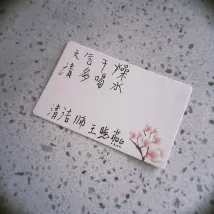 天气干燥
请多喝水
清洁师 王晓燕